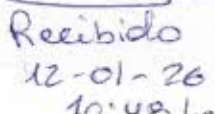 Recibido
12-01-26
10:48